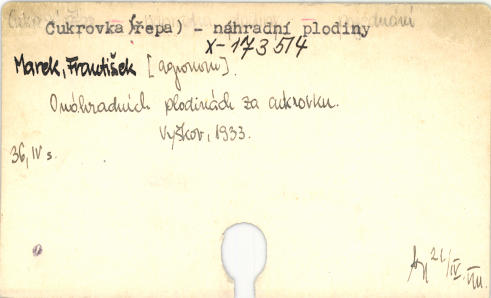 Cukrovka (řepa) - náhradní plodiny
X-173514
Marek, František [agronom].
O náhradních plodinách za cukrovku.
Vyškov, 1933.
36, IV s.
21/IV